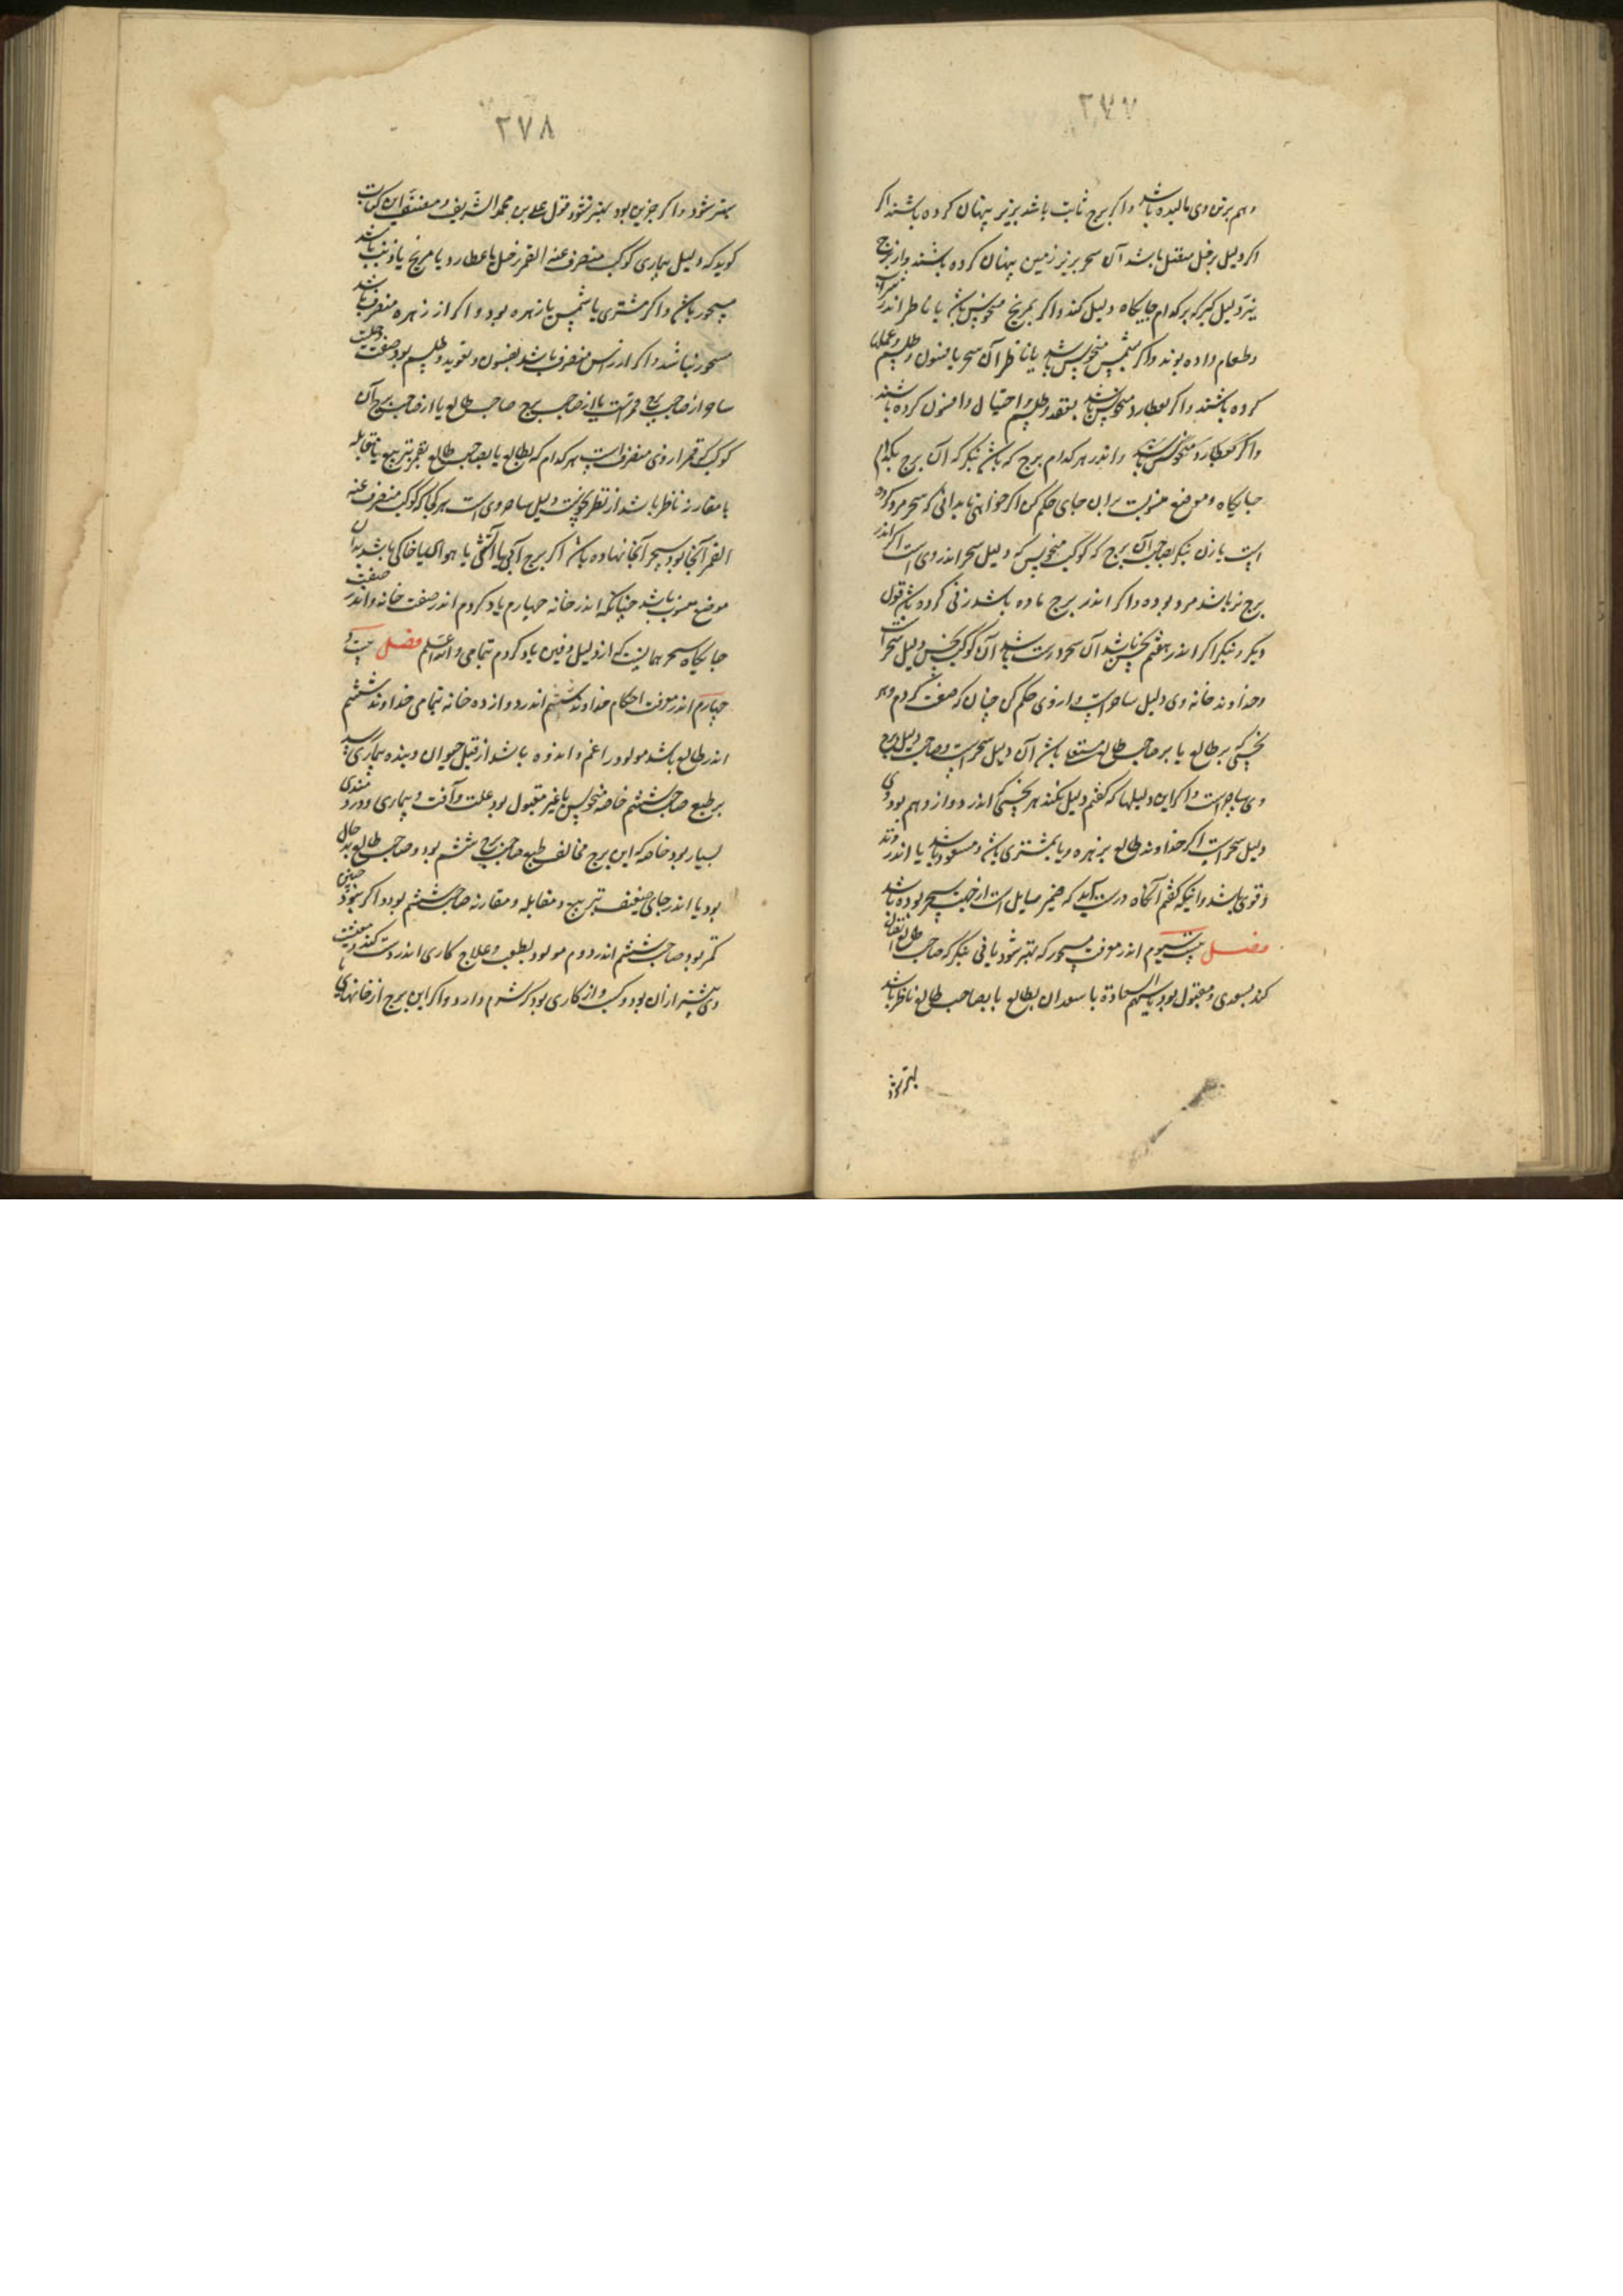 ۲۷۷
وهم برتن وی مالیده باشد واکر برج ثابت باشد بزیر پنهان کرده باشند اکر
اکر دلیل بزحل متصل باشد آن سحر بزیر زمین پنهان کرده باشند واز برج
نیز دلیل کیر که برکدام جایکاه دلیل کند واکر بمریخ منحوس باشد یا ناظر اندر شراب
وطعام داده بوند واکر بشمس منحوس باشد یا ناظر آن سحر بافسون وطلسم وعملها
کرده باشند واکر بعطارد منحوس باشد بعقد وطلسم واحتیال وافسون کرده باشند
واکر بعطارد منحوس باشد واندر هرکدام برج که باشد بنکر که آن برج بکدام
جایکاه وموضع منسوبست بران جای حکم کن اکر خواهی تا بدانی که سحر مرد کرده
است یا زن بنکر بصاحب آن برج که کوکب منحوس که دلیل سحر اندر وی است اکر اندر
برج نر باشد مرد بوده واکر اندر برج ماده باشد زنی کرده باشد قول
دیکر بنکر اکر اندر هفتم نحس باشد آن سحر درست باشد آن کوکب نحس دلیل سحر است
وخداوند خانه وی دلیل ساحر است واز وی حکم کن چنان که صفت کردم وهر
نحسی که بر طالع یا بر صاحب طالع مستعلی باشد آن دلیل سحر است وصاحب دلیل برج
وی ساحر است واکر این دلیلها که کفتم دلیل نکند هر نحسی که اندر دوازدهم بود وی
دلیل سحر است اکر خداوند طالع بزهره ویا بمشتری باشد ومسعود باشد یا اندر وتد
وقوی باشد واینکه کفتم آنکاه درست آید که ضمیر سایل است از جهت سحر بوده باشد
فصل بیست سیوم اندر معرفت مسحور که بهتر شود یا نی بنکر که صاحب طالع اتصال
کند بسعدی ومقبول بود یا سهم السعادة با سعدان بطالع یا بصاحب طالع ناظر باشد
بهتر شود
۲۷۸
بهتر شود واکر جز این بود بهتر نشود قول علی بن محمد الشریف ومصنف این کتاب
کوید که دلیل بیماری کوکب منصرف عنه القمر زحل یا عطارد یا مریخ یا ذنب باشد
مسحور باشد واکر مشتری یا شمس یا زهره بود واکر از زهره منصرف باشد
مسحور نباشد واکر از راس منصرف باشد بفسون وتعوید وطلسم بود صفت وحلیت
ساحر از صاحب برج قمر است یا از صاحب برج صاحب طالع یا از صاحب برج آن
کوکب که قمر از وی منصرف است هرکدام که بطالع یا بصاحب طالع بقمر بتربیع یا مقابله
یا مقارنه ناظر باشد از نظر نحوست دلیل ساحر وی است هرکجا که کوکب منصرف عنه
القمر آنجا بود سحر آنجا نهاده باشد اکر برج آبی یا آتشی یا هوائی یا خاکی باشد بدان
موضع منسوب باشد چنانکه اندر خانه چهارم یاد کردم اندر صفت خانه واندر صفت
جایکاه سحر همانست که از دلیل دفین یاد کردم بتمامی والله اعلم فصل بیست و
چهارم اندر معرفت احکام خداوند ششم اندر دوازده خانه بتمامی خداوند ششم
اندر طالع باشد مولود را غم واندوه باشد از قبل حیوان وبنده بیماری رسد
بر طبع صاحب ششم خاصه منحوس یا غیر مقبول بود علت وآفت وبیماری ودردمندی
بسیار بود خاصه که این برج مخالف طبع صاحب برج ششم بود وصاحب طالع بدحال
بود یا اندر جای ضعیف بتربیع ومقابله ومقارنه صاحب ششم بود واکر چنین بود
کمتر بود صاحب ششم اندر دوم مولود بطب وعلاج کاری اندر دست کند ومعیشت
وی بیشتر ازان بود وکسب واز کاری بود که شوم دارد واکر این برج از خانهای